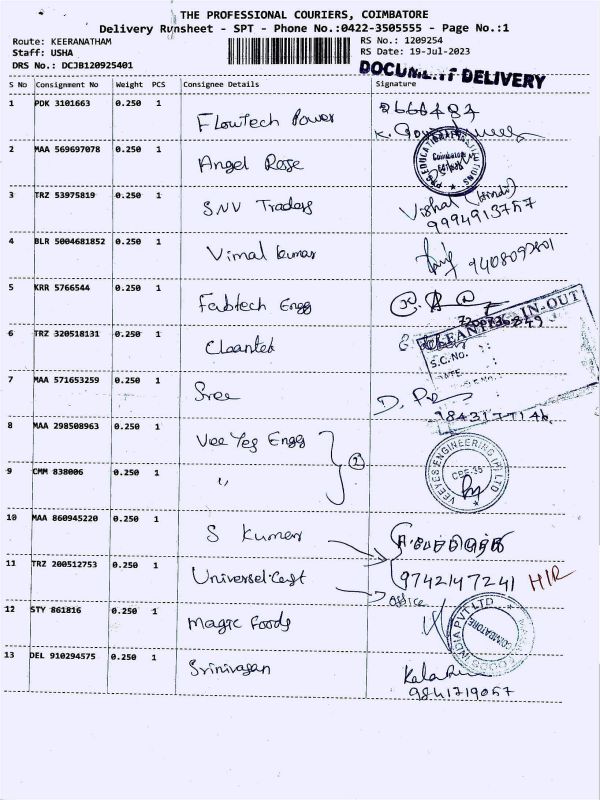 THE PROFESSIONAL COURIERS, COIMBATORE
Delivery Runsheet - SPT - Phone No.:0422-3505555 - Page No.:1
Route: KEERANATHAM
RS No.: 1209254
Staff: USHA
RS Date: 19-Jul-2023
DRS No.: DCJB120925401
DOCUMENT DELIVERY
S No Consignment No Weight PCS Consignee Details Signature
1 PDK 3101663 0.250 1 Flowtech Power
2 MAA 569697078 0.250 1 Angel Rose Coimbatore
3 TRZ 53975819 0.250 1 SNV Traders Vishal (Hindi)
9994913757
4 BLR 5004681852 0.250 1 Vimal kumar
5 KRR 5766544 0.250 1 Fabtech Engg
CLEANTEK IN-OUT
6 TRZ 320518131 0.250 1 Cleantek
S.C.No. :
DATE :
7 MAA 571653259 0.250 1 Sree D.
8 MAA 298508963 0.250 1 Vee Yes Engg
VEEYES ENGINEERING (P) LTD
CBE-35
2
9 CMM 838006 0.250 1 "
10 MAA 860945220 0.250 1 S Kumar
11 TRZ 200512753 0.250 1 Universel Cast 9742147241 H/R
office
12 STY 861816 0.250 1 Magic Foods
MAGIC FOODS INDIA PVT LTD
COIMBATORE
13 DEL 910294575 0.250 1 Srinivasan
9841719057